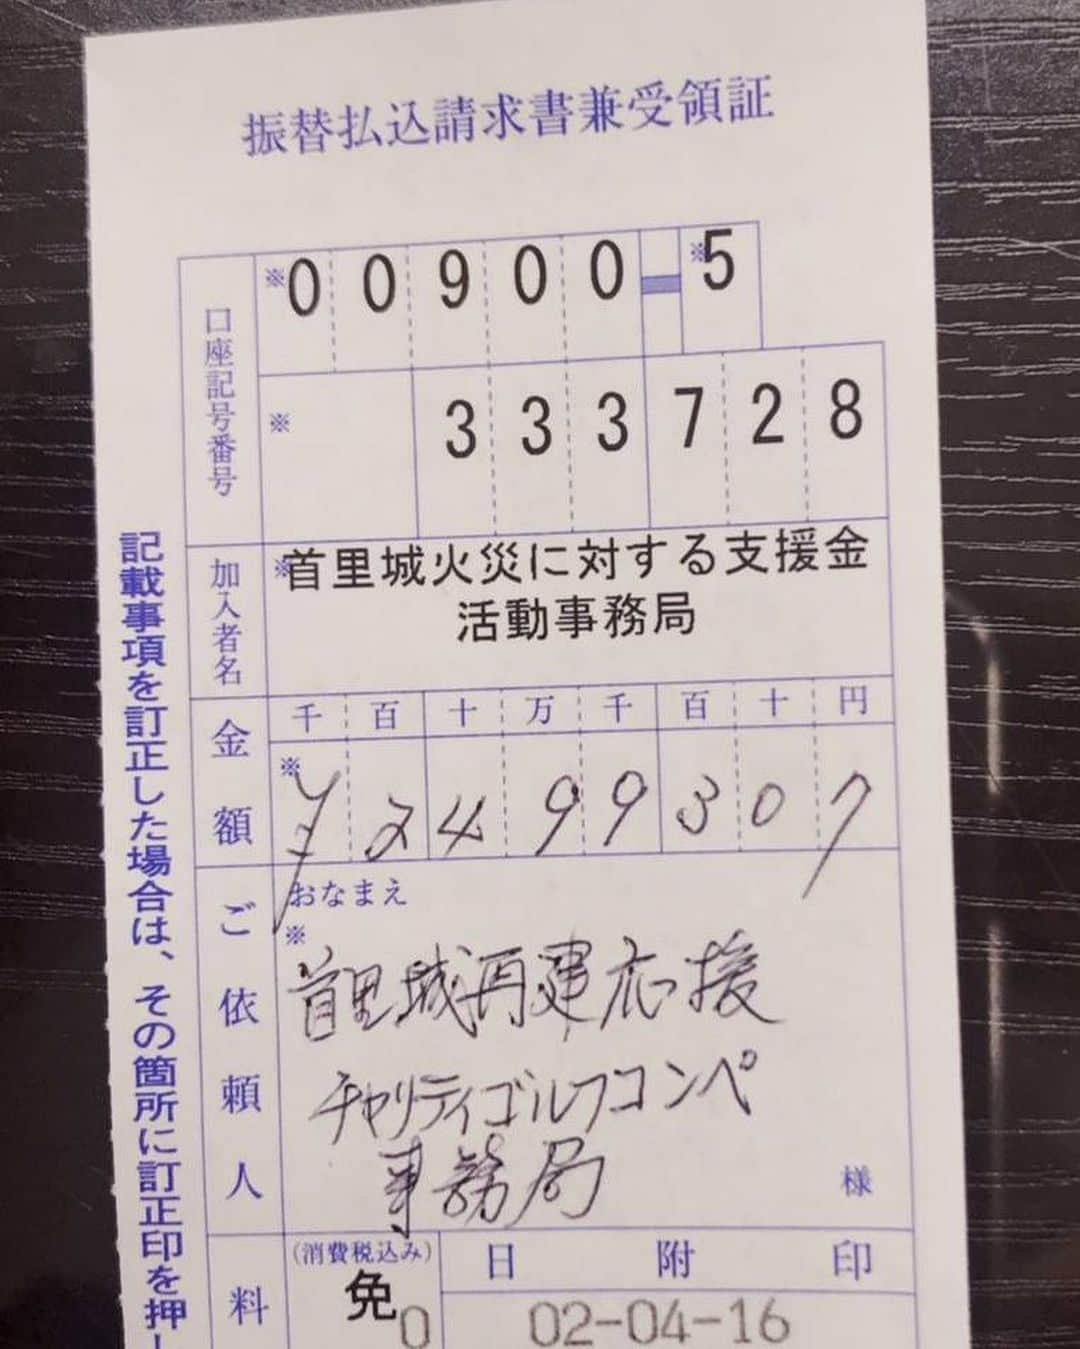 振替払込請求書兼受領証
口座記号番号
※00900-※5
※333728
加入者名
※首里城火災に対する支援金
活動事務局
金額
千百十万千百十円
※¥2499307
ご依頼人
おなまえ
※
首里城再建応援
チャリティゴルフコンペ
事務局
様
料
(消費税込み)
免
0
日附印
02-04-16
記載事項を訂正した場合は、その箇所に訂正印を押し